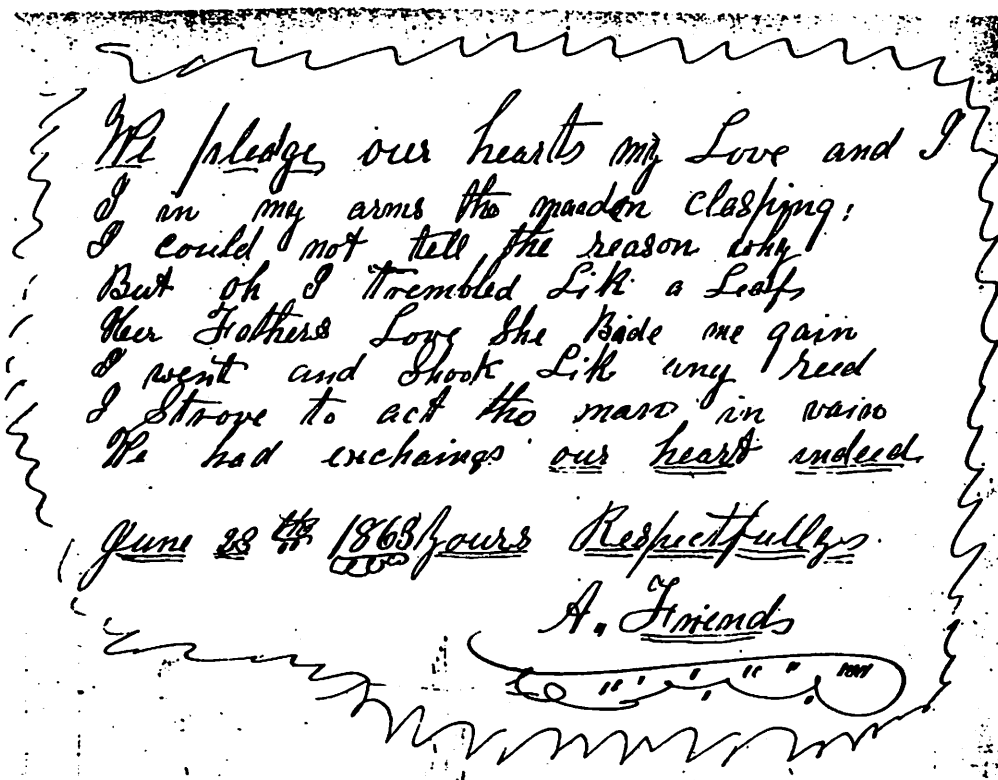 We pledge our hearts my Love and I
I in my arms the maiden clasping:
I could not tell the reason why
But oh I trembled Like a Leafs
Her Fathers Love She Bide me gain
I went and Shook Like any reed
I Strove to act the man in vain
We had exchaings our heart indeed.
June 28th 1863 Yours Respectfully
A. Friends